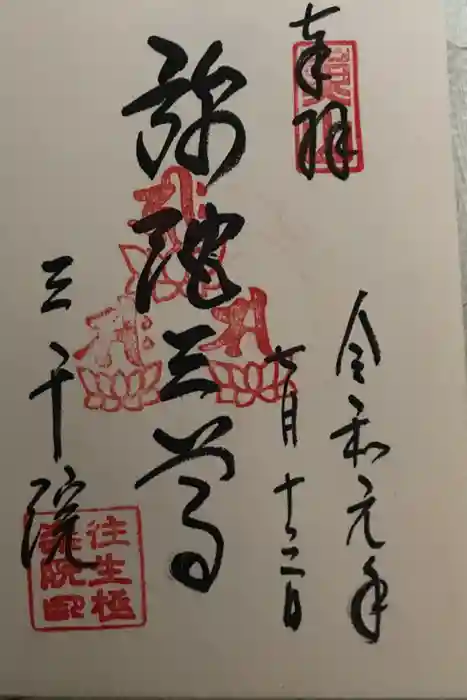 奉拝
令和元年
七月十二日
弥陀三尊
三千院
往生極
楽院印